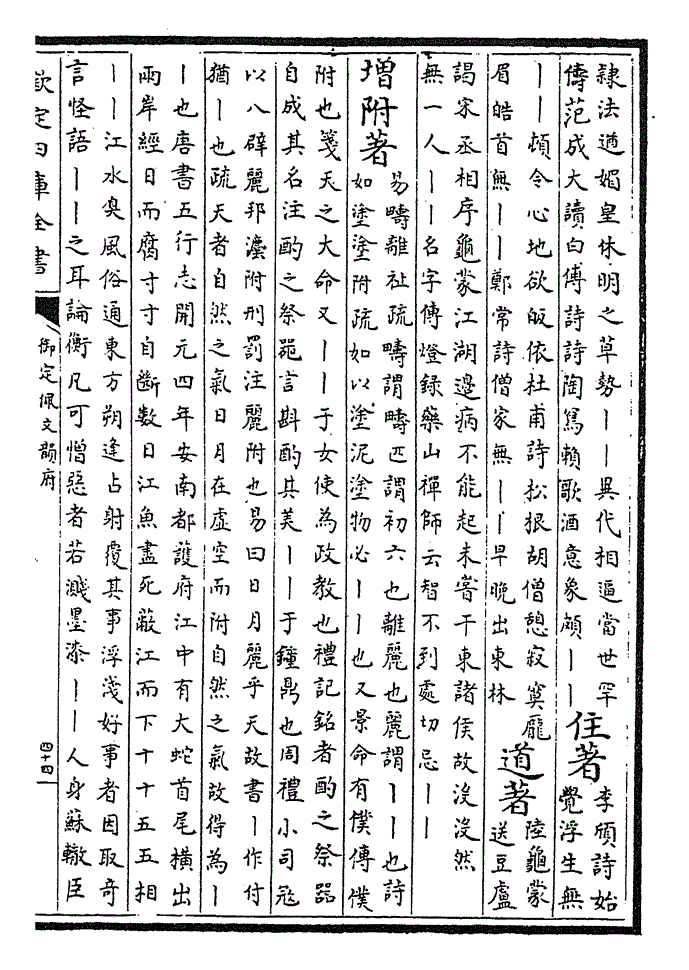 隷法遒媚皇休明之草勢丨丨異代相逼當世罕
傳范成大讀白傅詩詩陶寫賴歌酒意象頗丨丨
住著
李頎詩始
覺浮生無
丨丨頓令心地欲皈依杜甫詩松根胡僧憩寂寞龎
眉皓首無丨丨鄭常詩僧家無丨丨早晚出東林
道著
陸龜蒙
送豆盧
謁宋丞相序龜蒙江湖邊病不能起未嘗干東諸侯故沒沒然
無一人丨丨名字傳燈錄藥山禪師云智不到處切忌丨丨
增附著
易疇離祉疏疇謂疇匹謂初六也離麗也麗謂丨丨也詩
如塗塗附疏如以塗泥塗物必丨丨也又景命有僕傳僕
附也箋天之大命又丨丨于女使為政教也禮記銘者酌之祭器
自成其名注酌之祭器言斟酌其美丨丨于鐘鼎也周禮小司冦
以八辟麗邦灋附刑罰注麗附也易曰日月麗乎天故書丨作付
猶丨也疏天者自然之氣日月在虛空而附自然之氣故得為丨
丨也唐書五行志開元四年安南都護府江中有大蛇首尾橫出
兩岸經日而腐寸寸自斷數日江魚盡死蔽江而下十十五五相
丨丨江水臭風俗通東方朔逢占射覆其事浮淺好事者因取竒
言怪語丨丨之耳論衡凡可憎惡者若濺墨漆丨丨人身蘇轍臣
欽定四庫全書
御定佩文韻府
四十四